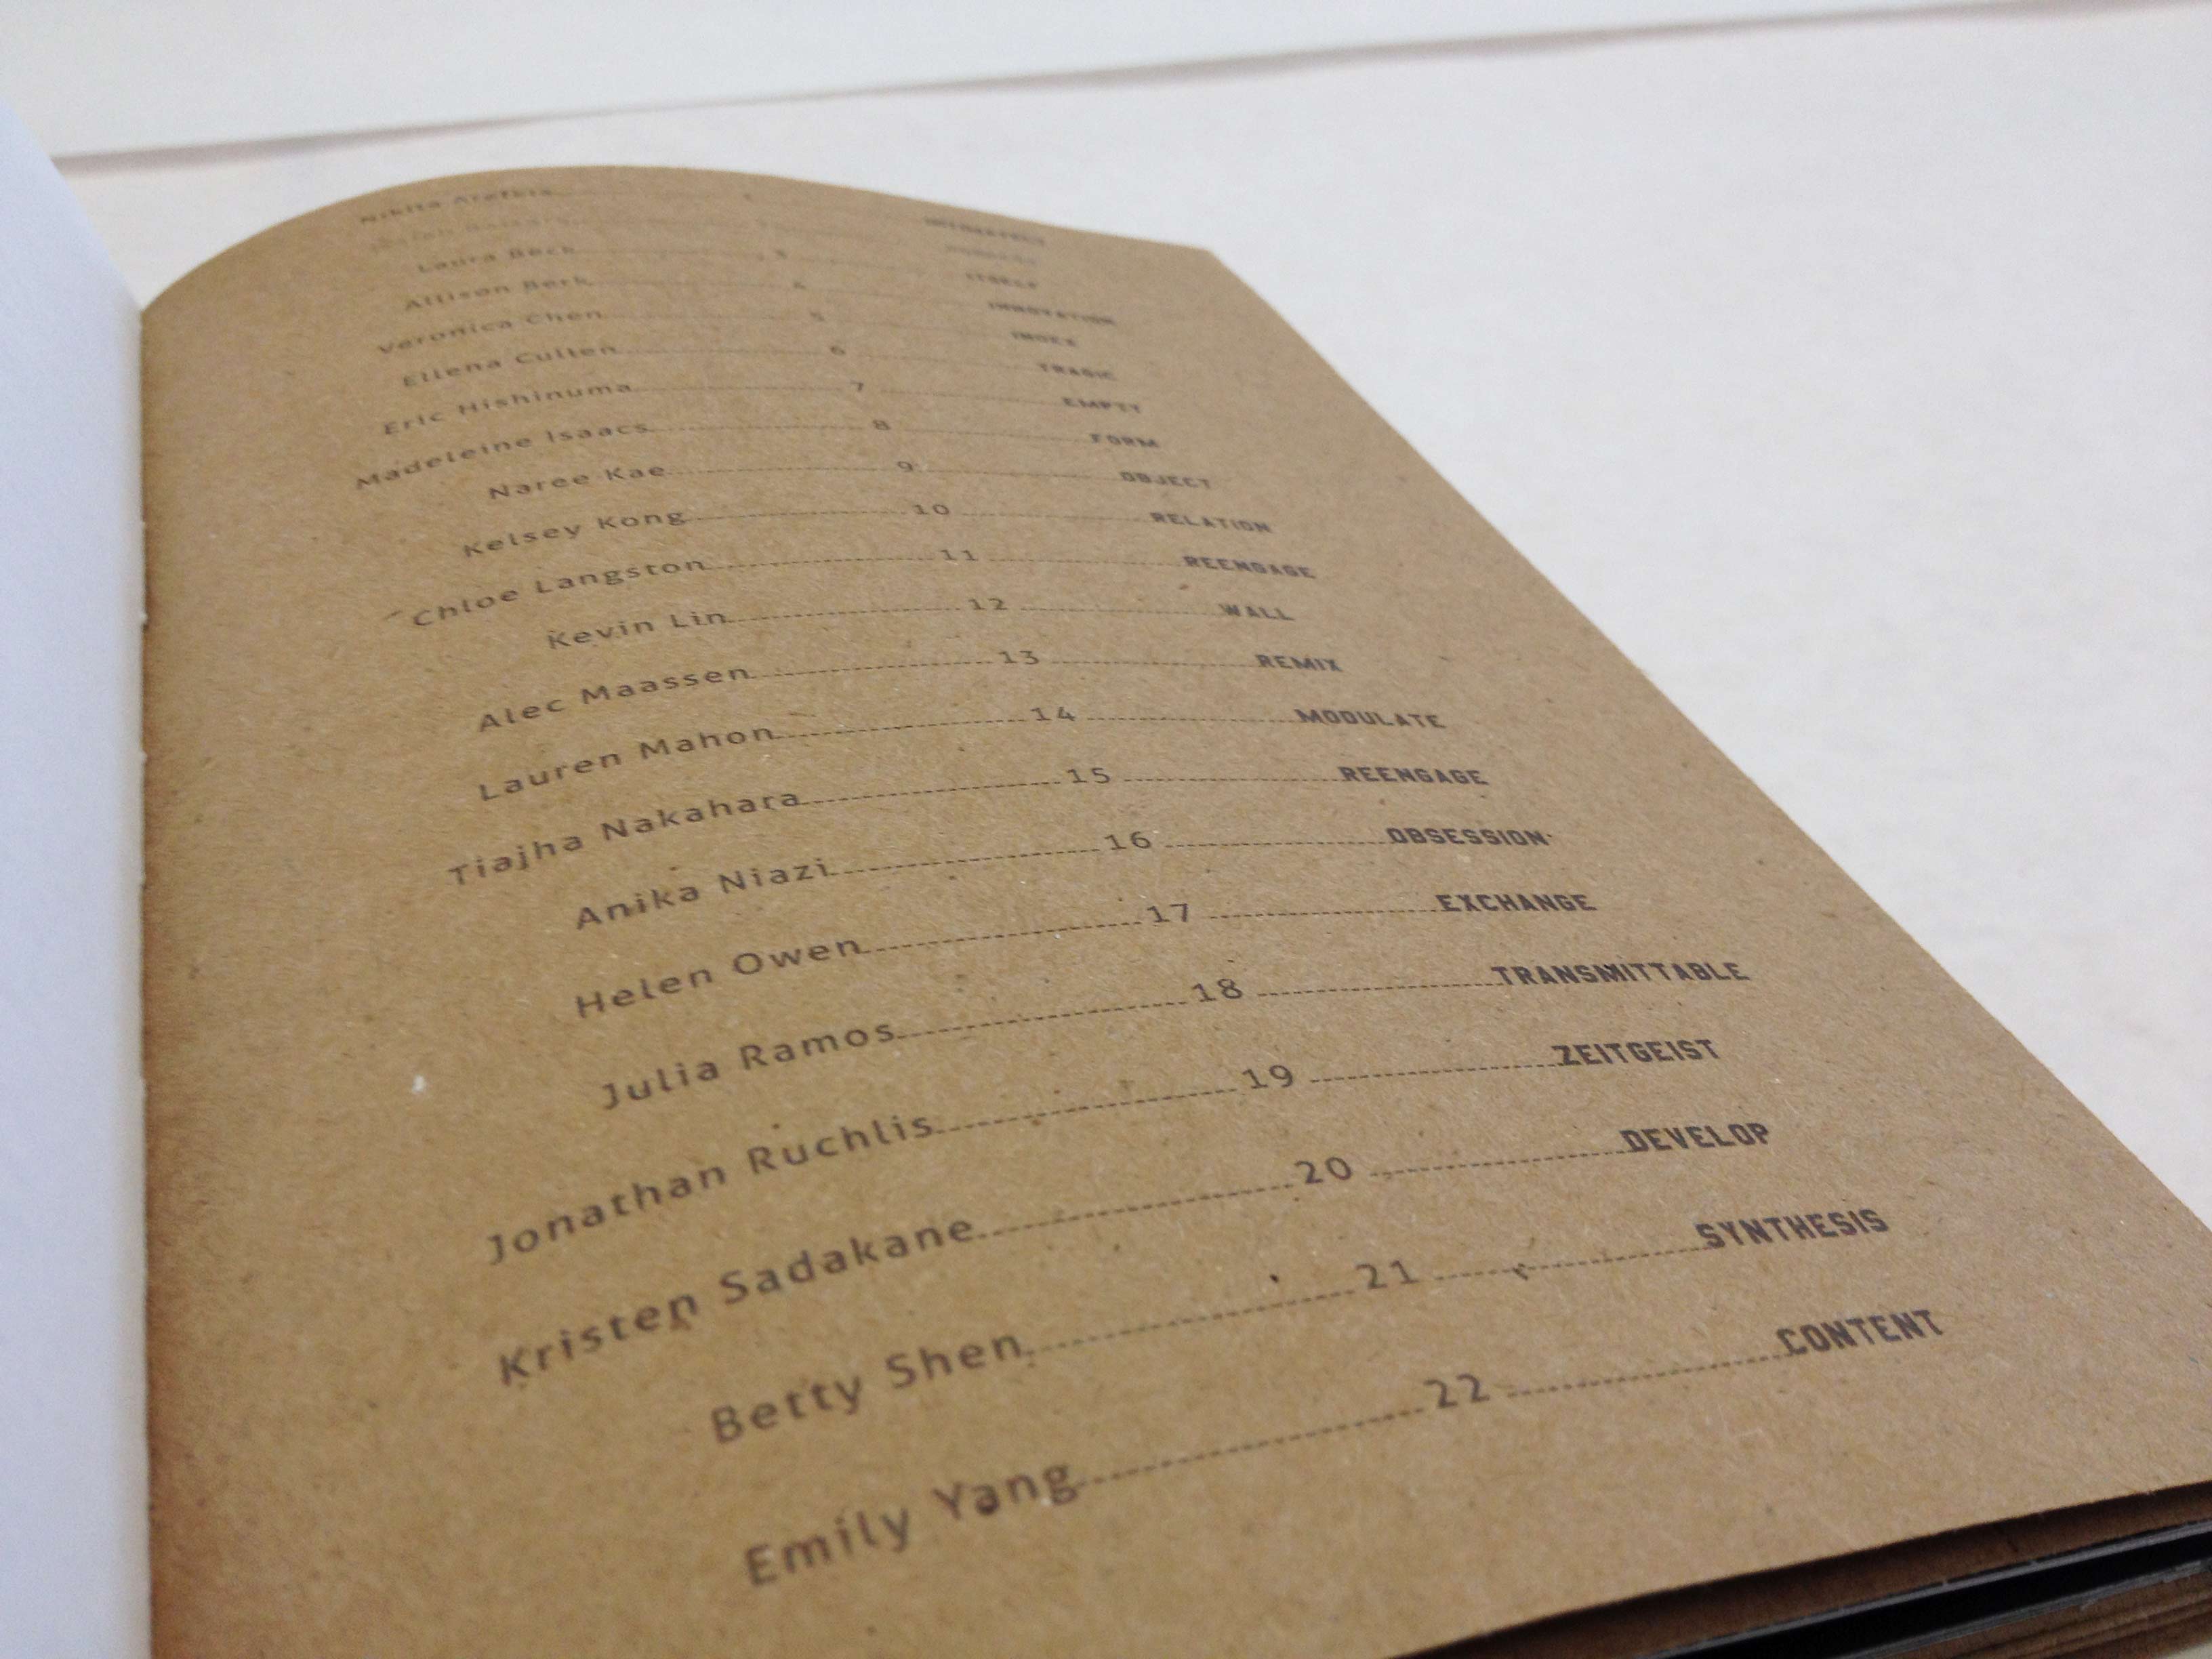 Nikita 1
Laura Beck 3 ITSELF
Allison Berk 4 INNOVATION
Veronica Chen 5 INDEX
Ellena Cullen 6 TRAGIC
Eric Hishinuma 7 EMPTY
Madeleine Isaacs 8 FORM
Naree Kae 9 OBJECT
Kelsey Kong 10 RELATION
Chloe Langston 11 REENGAGE
Kevin Lin 12 WALL
Alec Maassen 13 REMIX
Lauren Mahon 14 MODULATE
Tiajha Nakahara 15 REENGAGE
Anika Niazi 16 OBSESSION
Helen Owen 17 EXCHANGE
Julia Ramos 18 TRANSMITTABLE
Jonathan Ruchlis 19 ZEITGEIST
Kristen Sadakane 20 DEVELOP
Betty Shen 21 SYNTHESIS
Emily Yang 22 CONTENT